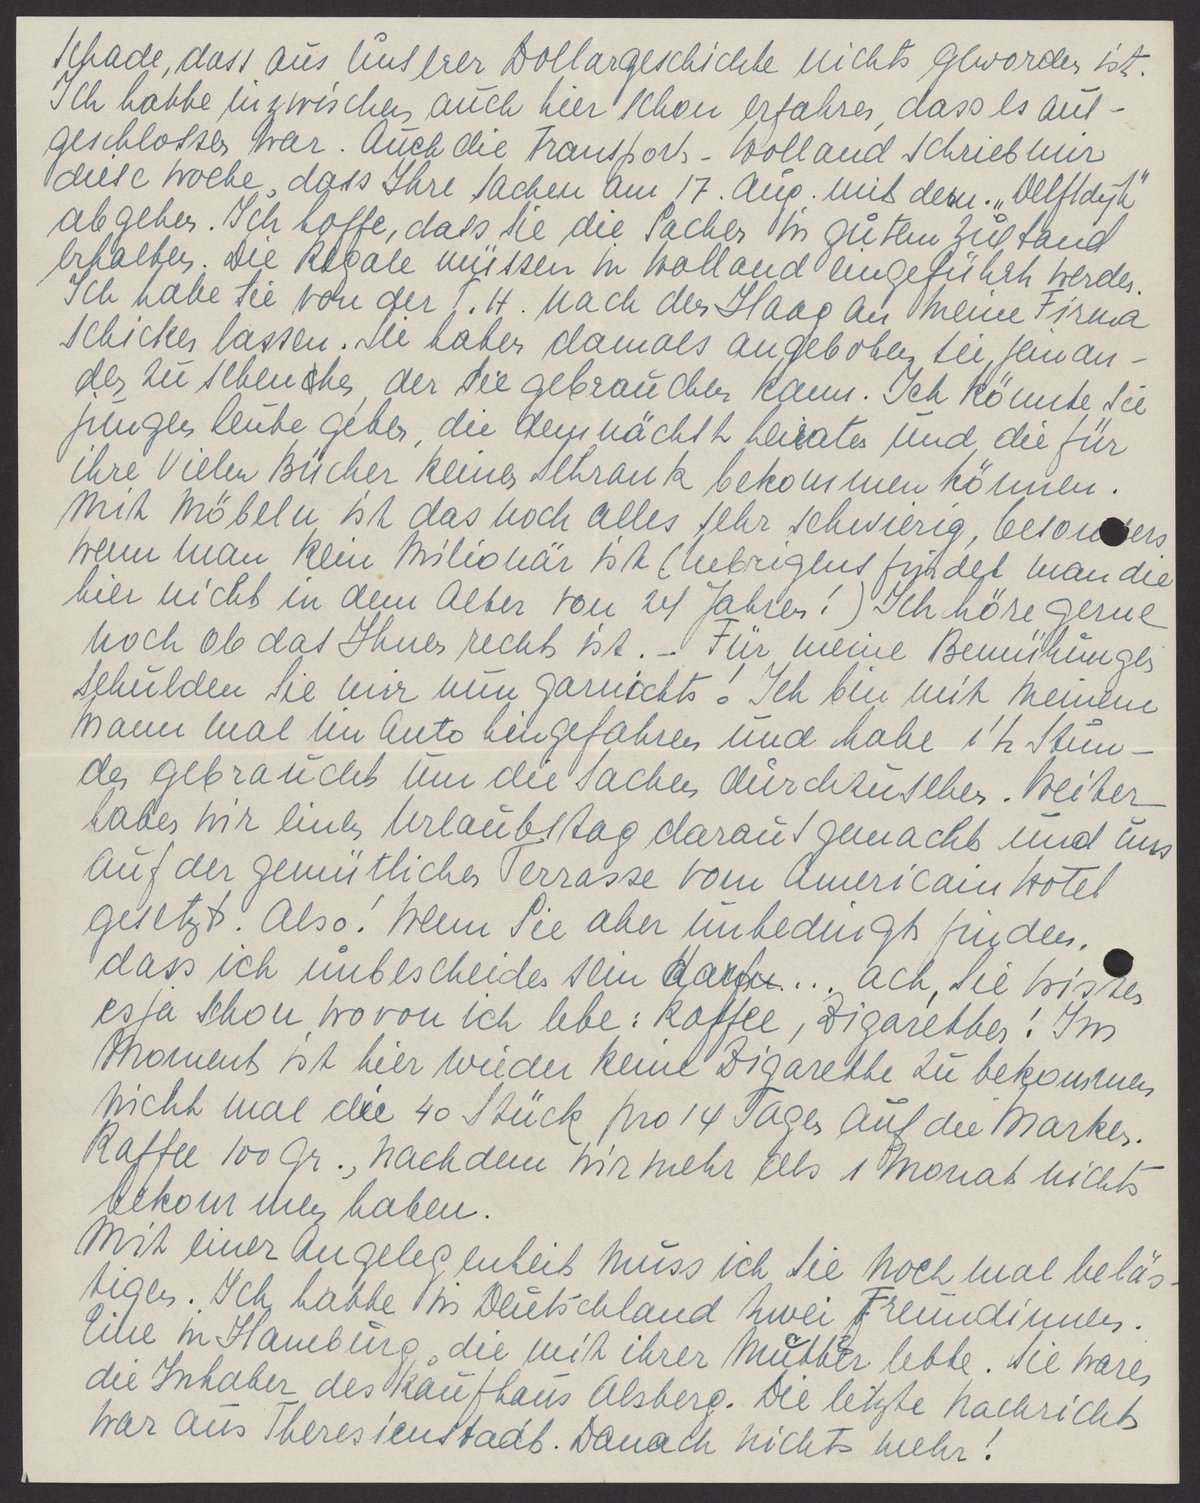 Schade, dass aus unserer Dollargeschichte nichts geworden ist.
Ich hatte inzwischen auch hier schon erfahren, dass es aus-
geschlossen war. Auch die Transport-Holland schrieb mir
diese Woche, dass Ihre Sachen am 17. Aug. mit dem „Delftdyk"
abgehen. Ich hoffe, dass Sie die Sachen in gutem Zustand
erhalten. Die Regale müssen in Holland eingeführt werden.
Ich habe sie von der T.H. nach den Haag an meine Firma
schicken lassen. Sie haben damals angeboten sie jeman-
den zu schenken, der sie gebrauchen kann. Ich könnte sie
jungen Leute geben, die demnächst heiraten und die für
ihre vielen Bücher keinen Schrank bekommen können.
Mit Möbeln ist das noch alles sehr schwierig, besonders
wenn man kein Milionär ist (uebrigens findet man die
hier nicht in dem Alter von 24 Jahren!) Ich höre gerne
noch ob das Ihnen recht ist. – Für meine Bemühungen
schulden Sie mir nun garnichts! Ich bin mit meinem
Mann mal im Auto hingefahren und habe 1½ Stun-
den gebraucht um die Sachen durchzusehen. Weiter
haben wir einen Urlaubstag daraus gemacht und uns
auf der gemütlichen Terrasse vom Americain Hotel
gesetzt. Also! Wenn Sie aber unbedingt finden,
dass ich unbescheiden sein darf.... ach, Sie wissen
es ja schon wovon ich lebe: Kaffee, Zigaretten! Im
Moment ist hier wieder keine Zigarette zu bekommen
nicht mal die 40 Stück pro 14 Tagen auf die Marken.
Kaffee 100 Gr., nachdem wir mehr als 1 Monat nichts
bekommen haben.
Mit einer Angelegenheit muss ich Sie noch mal beläs-
tigen. Ich hatte in Deutschland zwei Freundinnen.
Eine in Hamburg, die mit ihrer Mutter lebte. Sie waren
die Inhaber des Kaufhaus Alsberg. Die letzte Nachricht
war aus Theresienstadt. Danach nichts mehr!